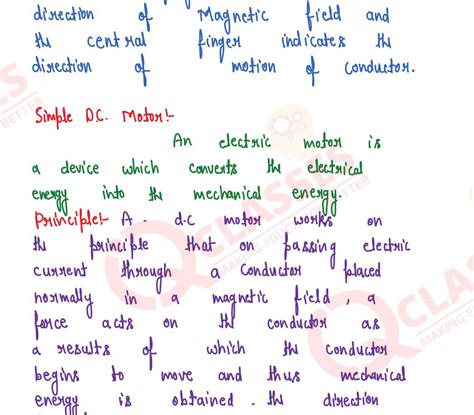 direction of Magnetic field and
the central finger indicates the
direction of motion of conductor.
Simple D.C. Motor!-
An electric motor is
a device which converts the electrical
energy into the mechanical energy.
Principle!- A d.c motor works on
the principle that on passing electric
current through a conductor placed
normally in a magnetic field, a
force acts on the conductor as
a results of which the conductor
begins to move and thus mechanical
energy is obtained. the direction
CLASSES
MAKING EDU BETTER
CLASSES
BETTER
CLAS
MAKING E